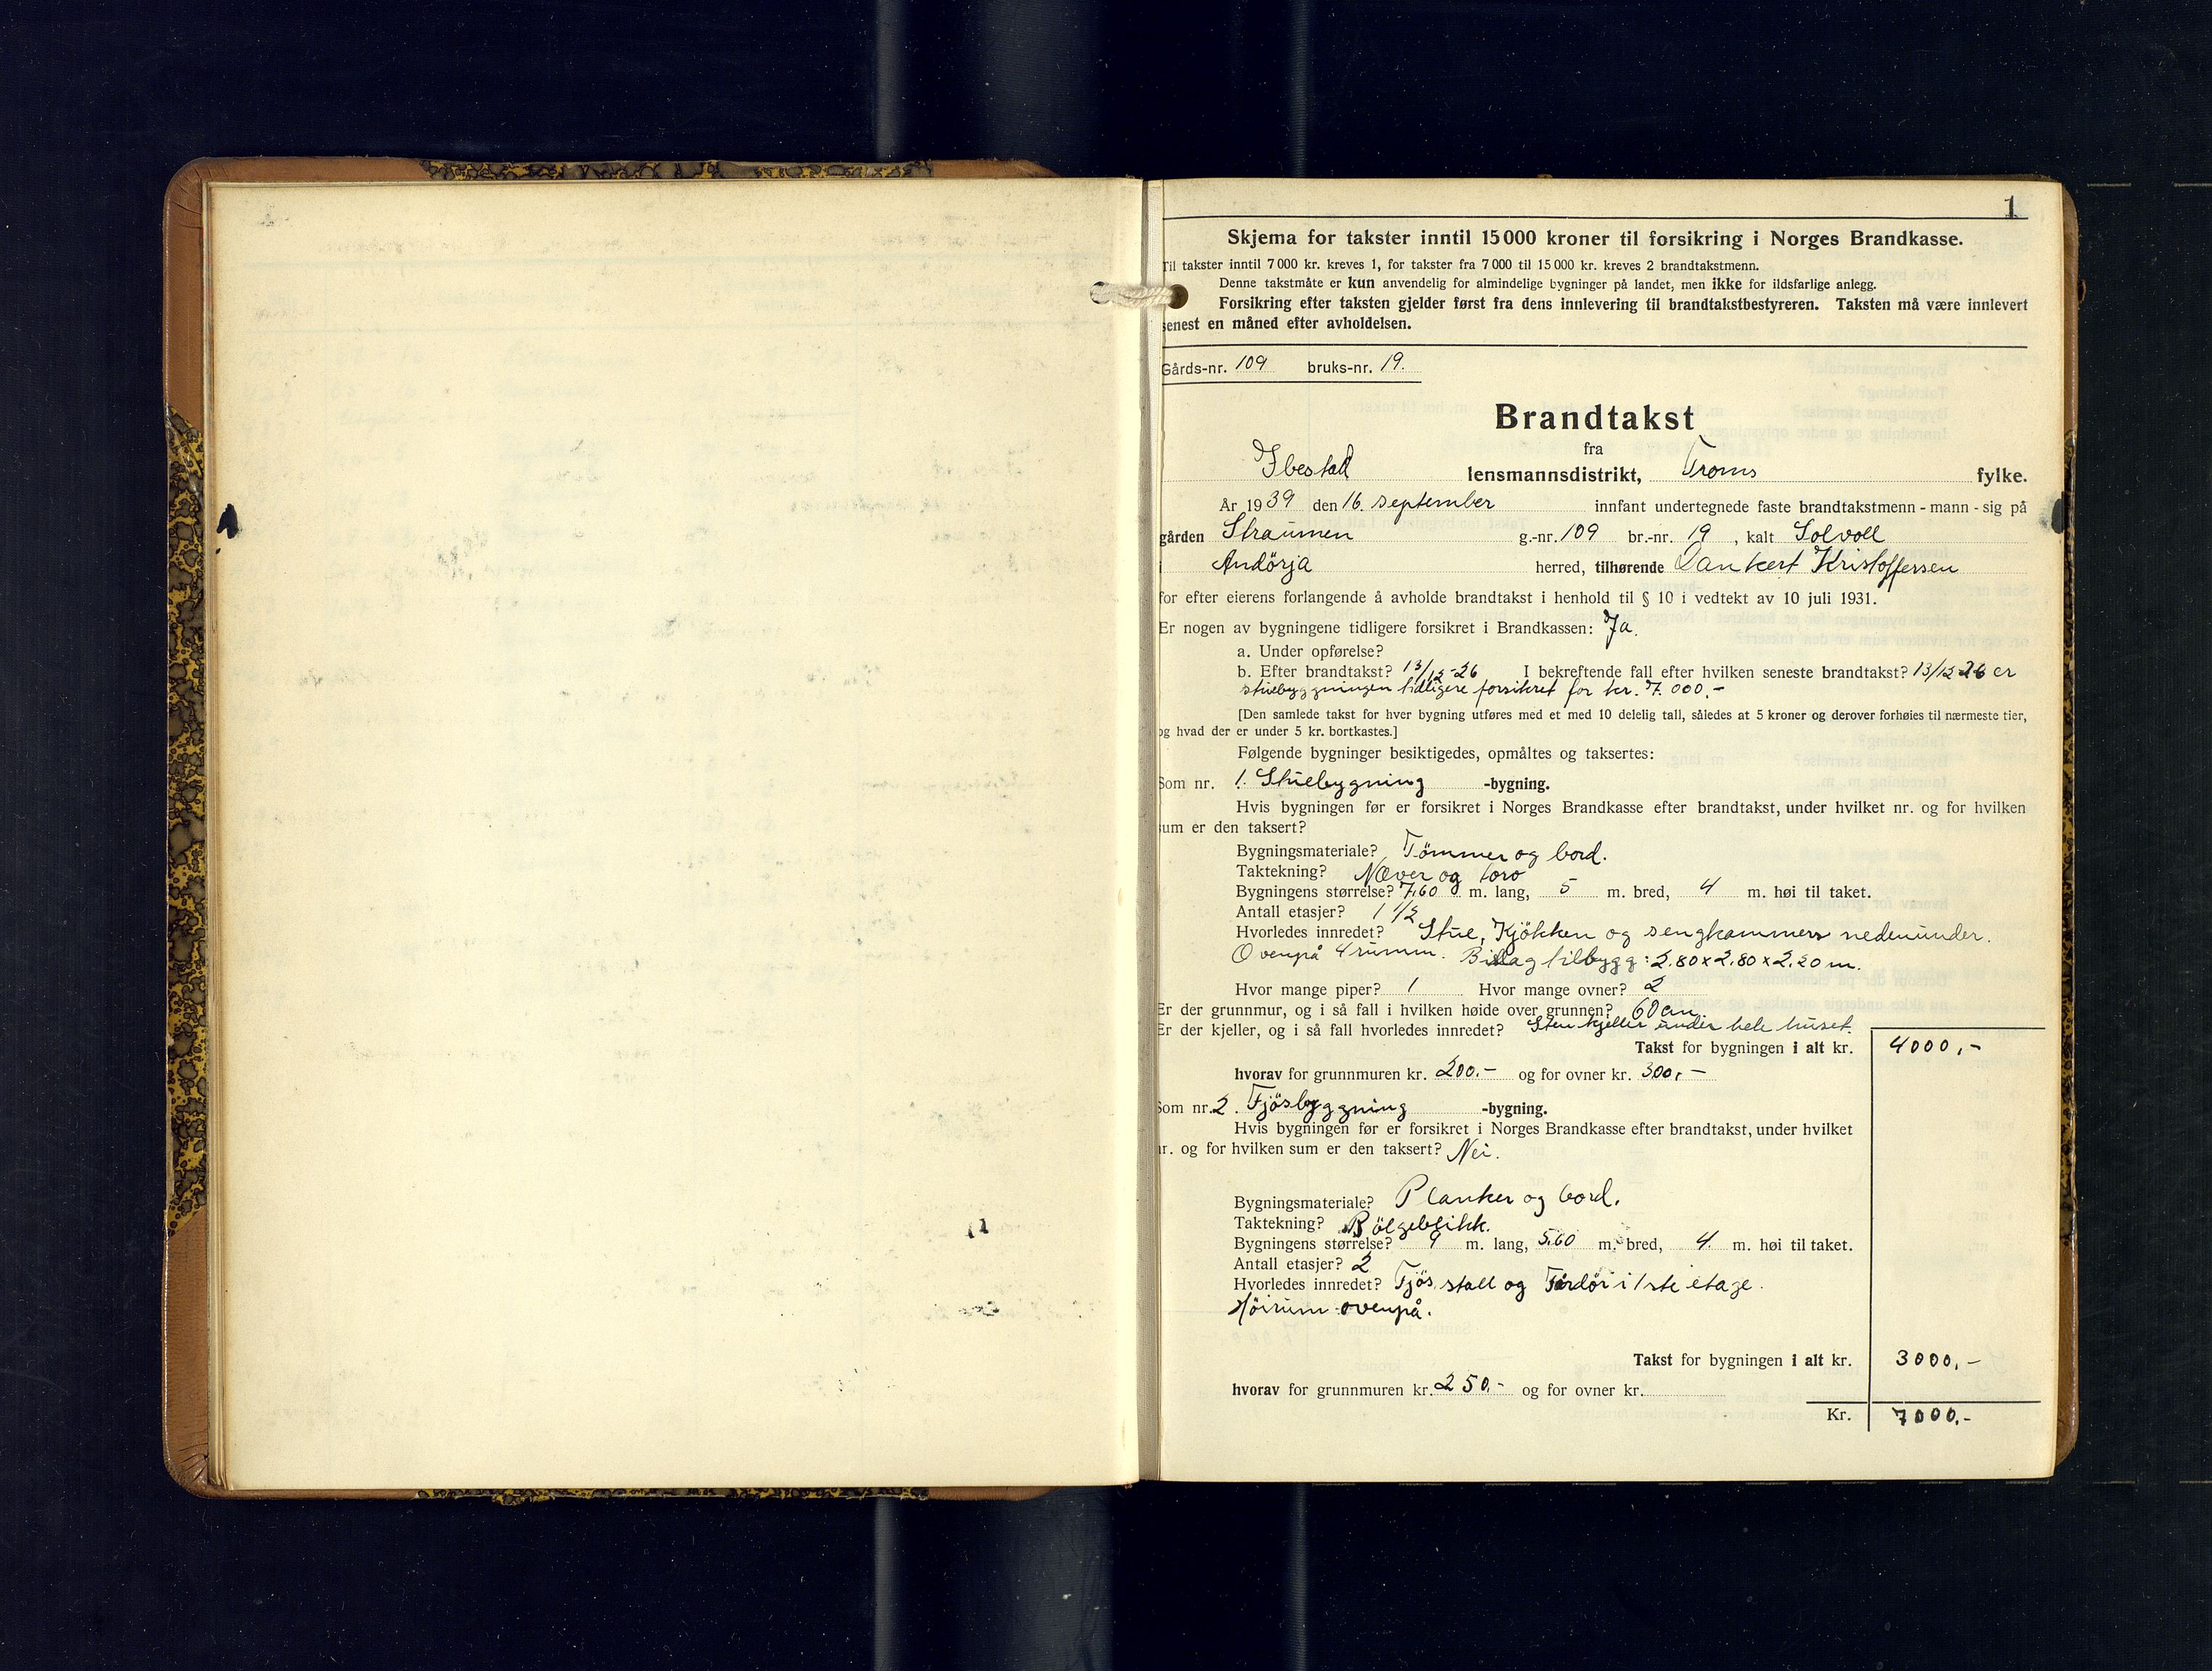 1
Skjema for takster inntil 15 000 kroner til forsikring i Norges Brandkasse.
Til takster inntil 7 000 kr. kreves 1, for takster fra 7 000 til 15 000 kr. kreves 2 brandtakstmenn.
Denne takstmåte er kun anvendelig for almindelige bygninger på landet, men ikke for ildsfarlige anlegg.
Forsikring efter taksten gjelder først fra dens innlevering til brandtakstbestyreren. Taksten må være innlevert
senest en måned efter avholdelsen.
Gårds-nr. 109 bruks-nr. 19.
Brandtakst
fra
Ibestad lensmannsdistrikt, Troms fylke.
År 1939 den 16. september innfant undertegnede faste brandtakstmenn - mann - sig på
gården Straumen g.-nr. 109 br.-nr. 19, kalt Solvoll
i Andörja herred, tilhørende Dankert Kristoffersen
for efter eierens forlangende å avholde brandtakst i henhold til § 10 i vedtekt av 10 juli 1931.
Er nogen av bygningene tidligere forsikret i Brandkassen: Ja.
a. Under opførelse?
b. Efter brandtakst? 13/12-26 I bekreftende fall efter hvilken seneste brandtakst? 13/12-26 er
stuebyggningen tidligere forsikret for kr. 7.000.-
[Den samlede takst for hver bygning utføres med et med 10 delelig tall, således at 5 kroner og derover forhøies til nærmeste tier,
og hvad der er under 5 kr. bortkastes.]
Følgende bygninger besiktigedes, opmåltes og taksertes:
Som nr. 1. Stuebygning -bygning.
Hvis bygningen før er forsikret i Norges Brandkasse efter brandtakst, under hvilket nr. og for hvilken
sum er den taksert?
Bygningsmateriale? Tömmer og bord.
Taktekning? Næver og torv
Bygningens størrelse? 7,60 m. lang, 5 m. bred, 4 m. høi til taket.
Antall etasjer? 1 1/2
Hvorledes innredet? Stue, Kjökken og sengkammers nedenunder.
Ovenpå 4 rumm. Bislag tilbygg: 2.80x2.80x2.20 m.
Hvor mange piper? 1 Hvor mange ovner? 2
Er der grunnmur, og i så fall i hvilken høide over grunnen? 60 cm.
Er der kjeller, og i så fall hvorledes innredet? Sten kjeller under hele huset.
Takst for bygningen i alt kr. 4000,-
hvorav for grunnmuren kr. 200.- og for ovner kr. 300,-
Som nr. 2. Fjösbyggning -bygning.
Hvis bygningen før er forsikret i Norges Brandkasse efter brandtakst, under hvilket
nr. og for hvilken sum er den taksert? Nei.
Bygningsmateriale? Planker og bord.
Taktekning? Bölgeblikk.
Bygningens størrelse? 9 m. lang, 5.60 m. bred, 4. m. høi til taket.
Antall etasjer? 2
Hvorledes innredet? Fjös, stall og i 1ste etage.
Höirum ovenpå.
Takst for bygningen i alt kr. 3000,-
hvorav for grunnmuren kr. 250.- og for ovner kr.
Kr. 7000.-